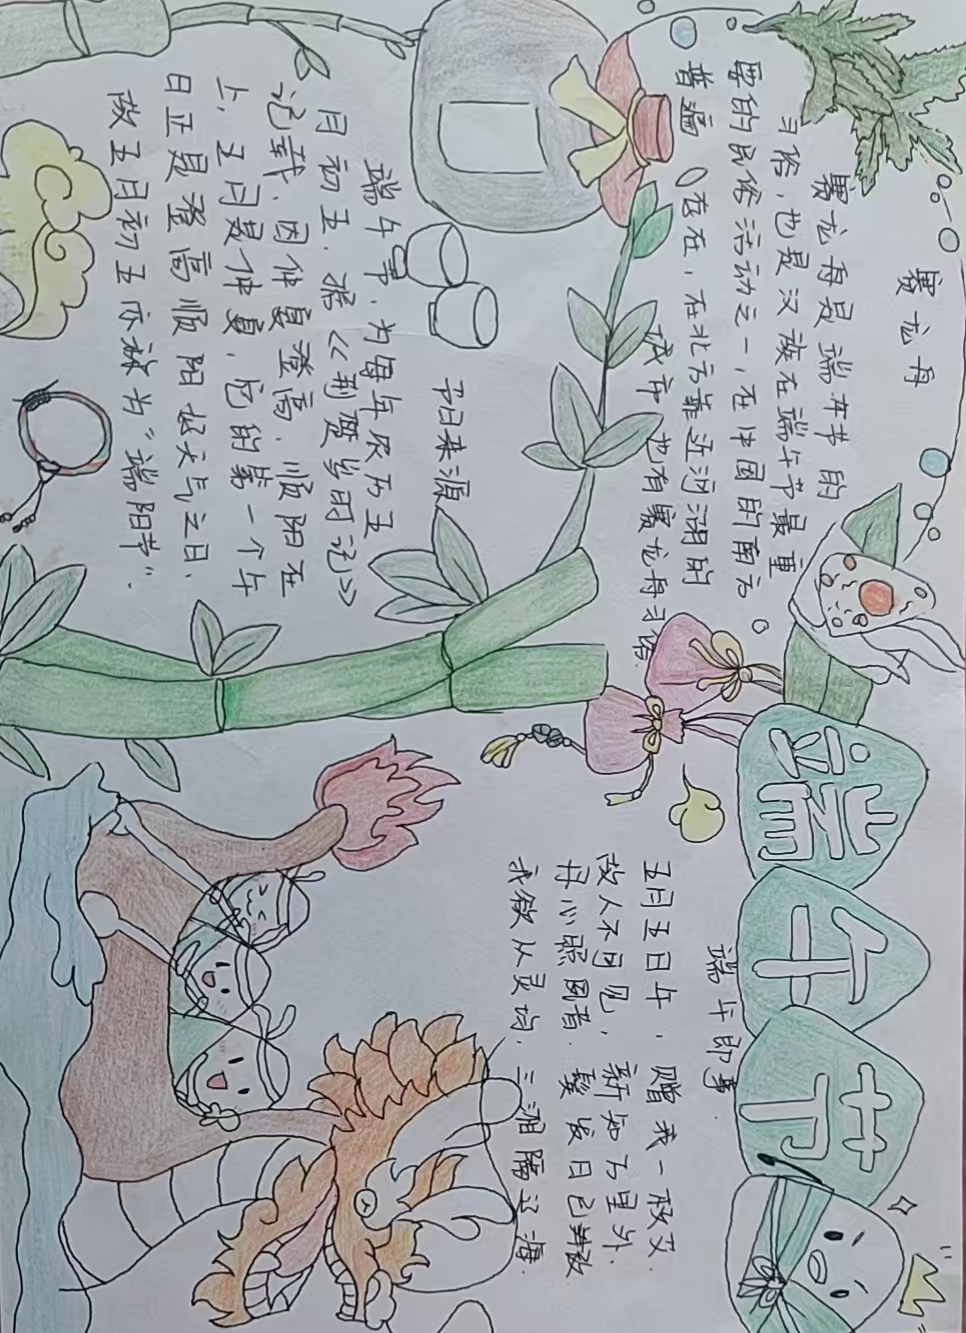 端午节
赛龙舟
赛龙舟是端午节的
习俗,也是汉族在端午节最重
要的民俗活动之一,在中国的南方
普遍在在,在北方靠近河湖的
城市也有赛龙舟习俗.
节日来源
端午节,为每年农历五
月初五.据《荆楚岁时记》
记载,因仲夏登高,顺阳在
上,五月是仲夏,它的第一个午
日正是登高顺阳好天气之日,
故五月初五亦称为"端阳节".
端午即事.
五月五日午,赠我一枝艾.
故人不可见,新知万里外.
丹心照夙昔.鬓发日已改
我欲从灵均,三湘隔辽海.